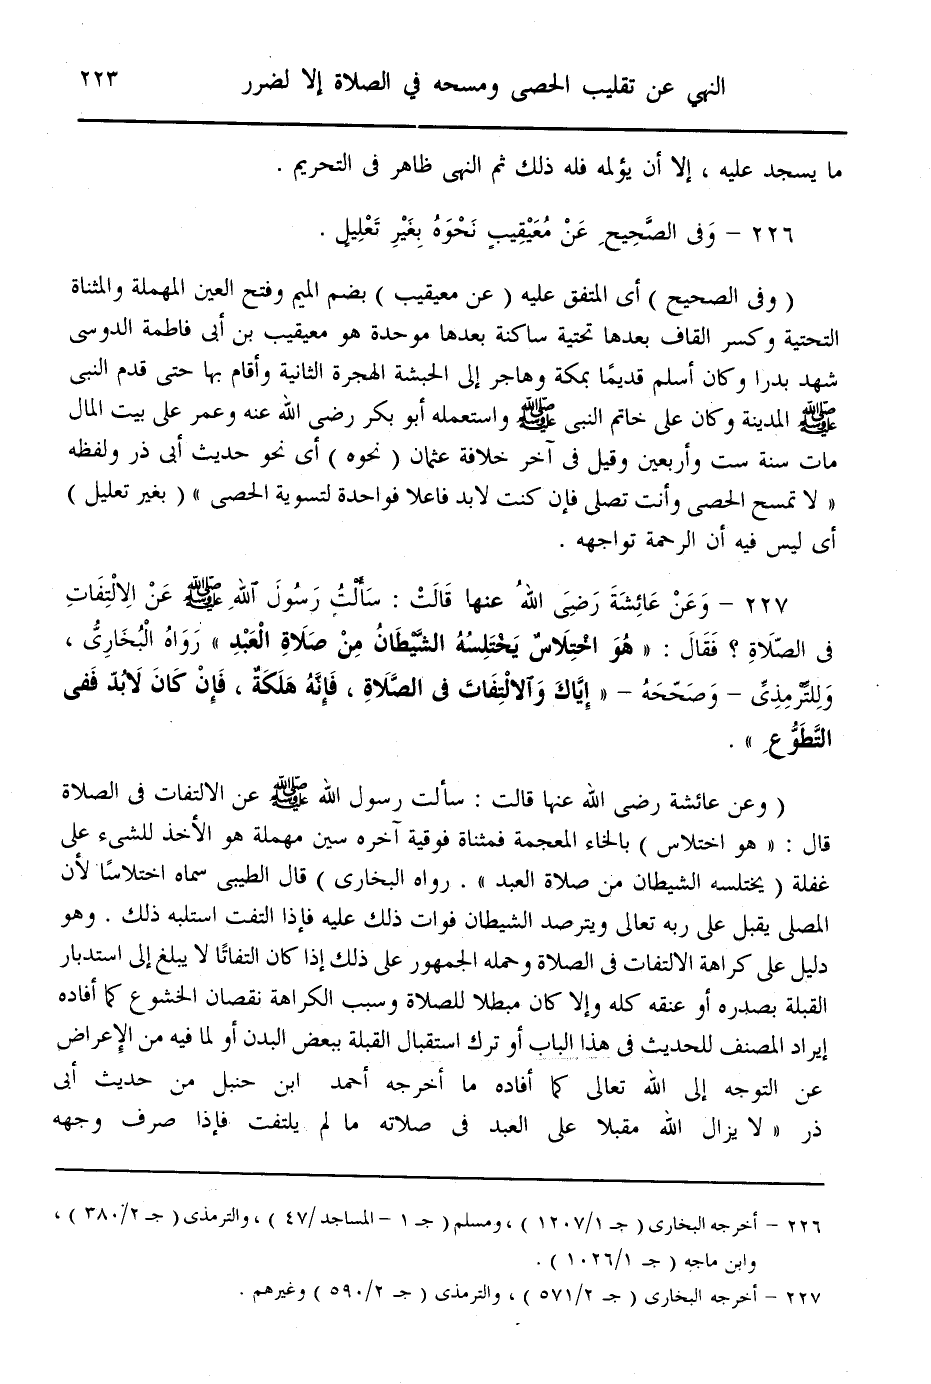 النهي عن تقليب الحصى ومسحه في الصلاة إلا لضرر ٢٢٣
ما يسجد عليه ، إلا أن يؤلمه فله ذلك ثم النهى ظاهر فى التحريم .
٢٢٦ – وَفى الصَّحِيحِ عَنْ مُعَيْقِيبٍ نَحْوَهُ بِغَيْرِ تَعْلِيلٍ .
( وفى الصحيح ) أى المتفق عليه ( عن معيقيب ) بضم الميم وفتح العين المهملة والمثناة
التحتية وكسر القاف بعدها تحتية ساكنة بعدها موحدة هو معيقيب بن أبى فاطمة الدوسى
شهد بدرا وكان أسلم قديمًا بمكة وهاجر إلى الحبشة الهجرة الثانية وأقام بها حتى قدم النبى
ﷺ المدينة وكان على خاتم النبى ﷺ واستعمله أبو بكر رضى الله عنه وعمر على بيت المال
مات سنة ست وأربعين وقيل فى آخر خلافة عثمان ( نحوه ) أى نحو حديث أبى ذر ولفظه
« لا تمسح الحصى وأنت تصلى فإن كنت لابد فاعلا فواحدة لتسوية الحصى » ( بغير تعليل )
أى ليس فيه أن الرحمة تواجهه .
٢٢٧ – وَعَنْ عَائِشَةَ رَضِيَ اللهُ عنها قَالَتْ : سَأَلْتُ رَسُولَ ٱللهِ ﷺ عَنْ الِالْتِفَاتِ
فى الصّلَاةِ ؟ فَقَالَ : « هُوَ اخْتِلَاسٌ يَخْتَلِسُهُ الشَّيْطَانُ مِنْ صَلَاةِ الْعَبْدِ » رَوَاهُ الْبُخَارِىُّ ،
وَلِلتِّرْمِذِىِّ – وَصَحّحَهُ – « إِيَّاكَ وَٱلالْتِفَاتَ فى الصَّلَاةِ ، فَإِنَّهُ هَلَكَةٌ ، فَإِنْ كَانَ لَابُدّ فَفى
التَّطَوُّعِ » .
( وعن عائشة رضى الله عنها قالت : سألت رسول الله ﷺ عن الالتفات فى الصلاة
قال : « هو اختلاس ) بالخاء المعجمة فمثناة فوقية آخره سين مهملة هو الأخذ للشىء على
غفلة ( يختلسه الشيطان من صلاة العبد » . رواه البخارى ) قال الطيبى سماه اختلاسًا لأن
المصلى يقبل على ربه تعالى ويترصد الشيطان فوات ذلك عليه فإذا التفت استلبه ذلك . وهو
دليل على كراهة الالتفات فى الصلاة وحمله الجمهور على ذلك إذا كان التفاتًا لا يبلغ إلى استدبار
القبلة بصدره أو عنقه كله وإلا كان مبطلا للصلاة وسبب الكراهة نقصان الخشوع كما أفاده
إيراد المصنف للحديث فى هذا الباب أو ترك استقبال القبلة ببعض البدن أو لما فيه من الإعراض
عن التوجه إلى الله تعالى كما أفاده ما أخرجه أحمد ابن حنبل من حديث أبى
ذر « لا يزال الله مقبلا على العبد فى صلاته ما لم يلتفت فإذا صرف وجهه
٢٢٦ – أخرجه البخارى ( جـ ١٢٠٧/١ ) ، ومسلم ( جـ ١ – المساجد /٤٧ ) ، والترمذى ( جـ ٣٨٠/٢ ) ،
وابن ماجه ( جـ ١٠٢٦/١ ) .
٢٢٧ – أخرجه البخارى ( جـ ٥٧١/٢ ) ، والترمذى ( جـ ٥٩٠/٢ ) وغيرهم .